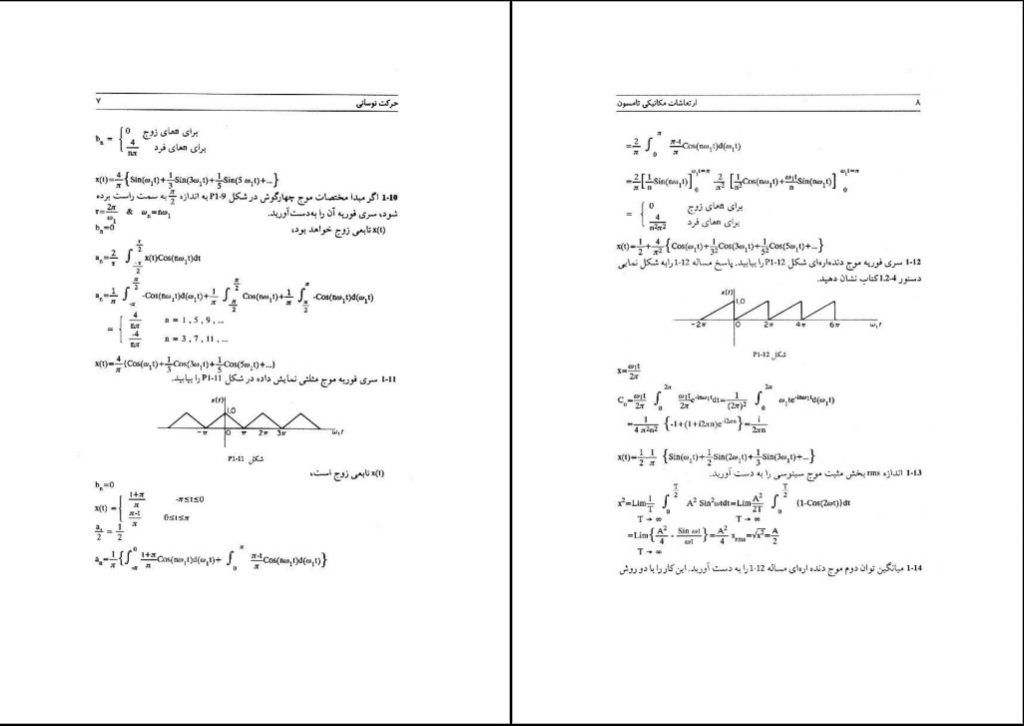 ۷ حرکت نوسانی
bₙ = { 0 برای nهای زوج
4/nπ برای nهای فرد
x(t)=4/π{Sin(ω₁t)+1/3Sin(3ω₁t)+1/5Sin(5ω₁t)+...}
1-10 اگر مبدا مختصات موج چهارگوش در شکل P1-9 به اندازه π/2 به سمت راست برده
شود، سری فوریه آن را به‌دست‌آورید.
τ=2π/ω₁ & ωₙ=nω₁
bₙ=0 x(t) تابعی زوج خواهد بود،
aₙ=2/τ ∫_{-τ/2}^{τ/2} x(t)Cos(nω₁t)dt
aₙ=1/π ∫_{-π}^{-π/2} -Cos(nω₁t)d(ω₁t)+1/π ∫_{-π/2}^{π/2} Cos(nω₁t)+1/π ∫_{π/2}^{π} -Cos(nω₁t)d(ω₁t)
= { 4/nπ n = 1 , 5 , 9 , ...
-4/nπ n = 3 , 7 , 11 , ...
x(t)=4/π{Cos(ω₁t)+1/3Cos(3ω₁t)+1/5Cos(5ω₁t)+...}
1-11 سری فوریه موج مثلثی نمایش داده در شکل P1-11 را بیابید.
x(t)
1.0
-π 0 π 2π 3π ω₁t
شکل P1-11
x(t) تابعی زوج است،
bₙ=0
x(t) = { t+π/π -π≤t≤0
π-t/π 0≤t≤π
a₀/2 = 1/2
aₙ=1/π{∫_{-π}^{0} t+π/π Cos(nω₁t)d(ω₁t)+ ∫_{0}^{π} π-t/π Cos(nω₁t)d(ω₁t)}
ارتعاشات مکانیکی تامسون ۸
=2/π ∫_{0}^{π} π-t/π Cos(nω₁t)d(ω₁t)
=2/π[1/n Sin(nω₁t)]_{0}^{ω₁t=π} 2/π² [1/n² Cos(nω₁t)+ω₁t/n Sin(nω₁t)]_{0}^{ω₁t=π}
= { 0 برای nهای زوج
4/n²π² برای nهای فرد
x(t)=1/2+4/π²{Cos(ω₁t)+1/3²Cos(3ω₁t)+1/5²Cos(5ω₁t)+...}
1-12 سری فوریه موج دندهاره‌ای شکل P1-12 را بیابید. پاسخ مساله 12-1 رابه شکل نمایی
دستور 1.2-4 کتاب نشان دهید.
x(t)
1.0
-2π 0 2π 4π 6π ω₁t
شکل P1-12
x=ω₁t/2π
Cₙ=ω₁t/2π ∫_{0}^{2π} ω₁t/2π e^{-inω₁t}dt=1/(2π)² ∫_{0}^{2π} ω₁te^{-inω₁t}d(ω₁t)
=1/4π²n² {-1+(1+i2πn)e^{-i2πn}}=i/2πn
x(t)=1/2-1/π {Sin(ω₁t)+1/2Sin(2ω₁t)+1/3Sin(3ω₁t)+...}
1-13 اندازه rms بخش مثبت موج سینوسی را به دست آورید.
x²=Lim1/T ∫_{0}^{T/2} A² Sin²ωtdt=LimA²/2T ∫_{0}^{T/2} (1-Cos(2ωt))dt
T→∞ T→∞
=Lim{A²/4 - Sin ωt/ωt}=A²/4 x_rms=√x²=A/2
T→∞
1-14 میانگین توان دوم موج دنده اره‌ای مساله 12-1 را به دست آورید. این‌کار را با دو روش